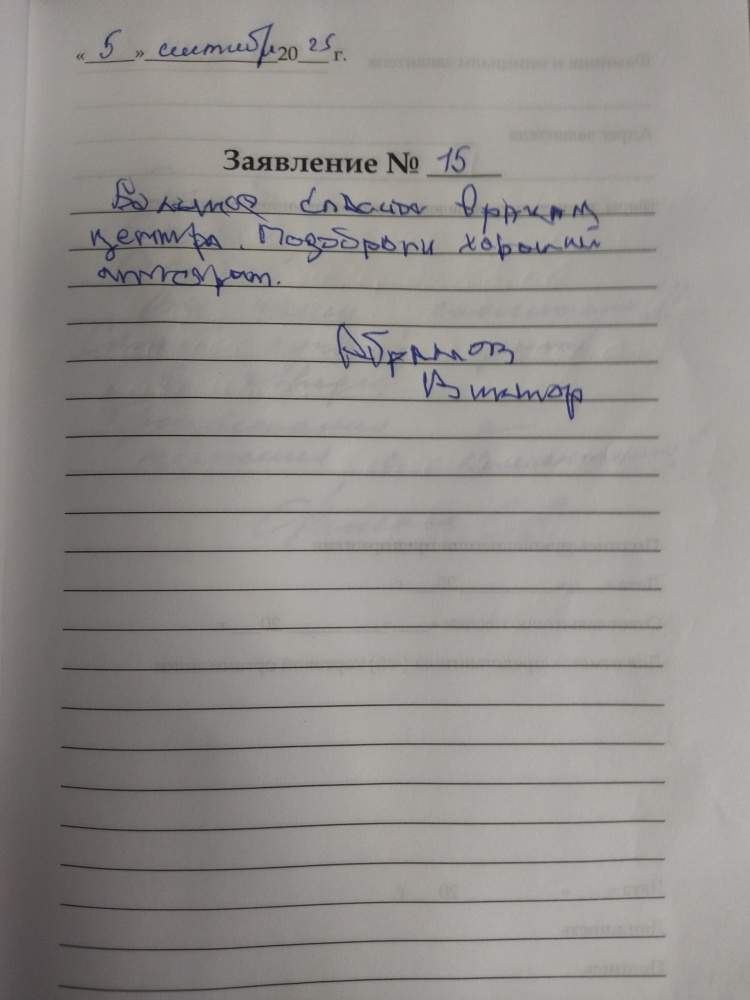 « 5 » сентября 20 25 г.
Заявление № 15
Большое спасибо врачам
центра. Подобрали хороший
аппарат.
Абрамов
Виктор